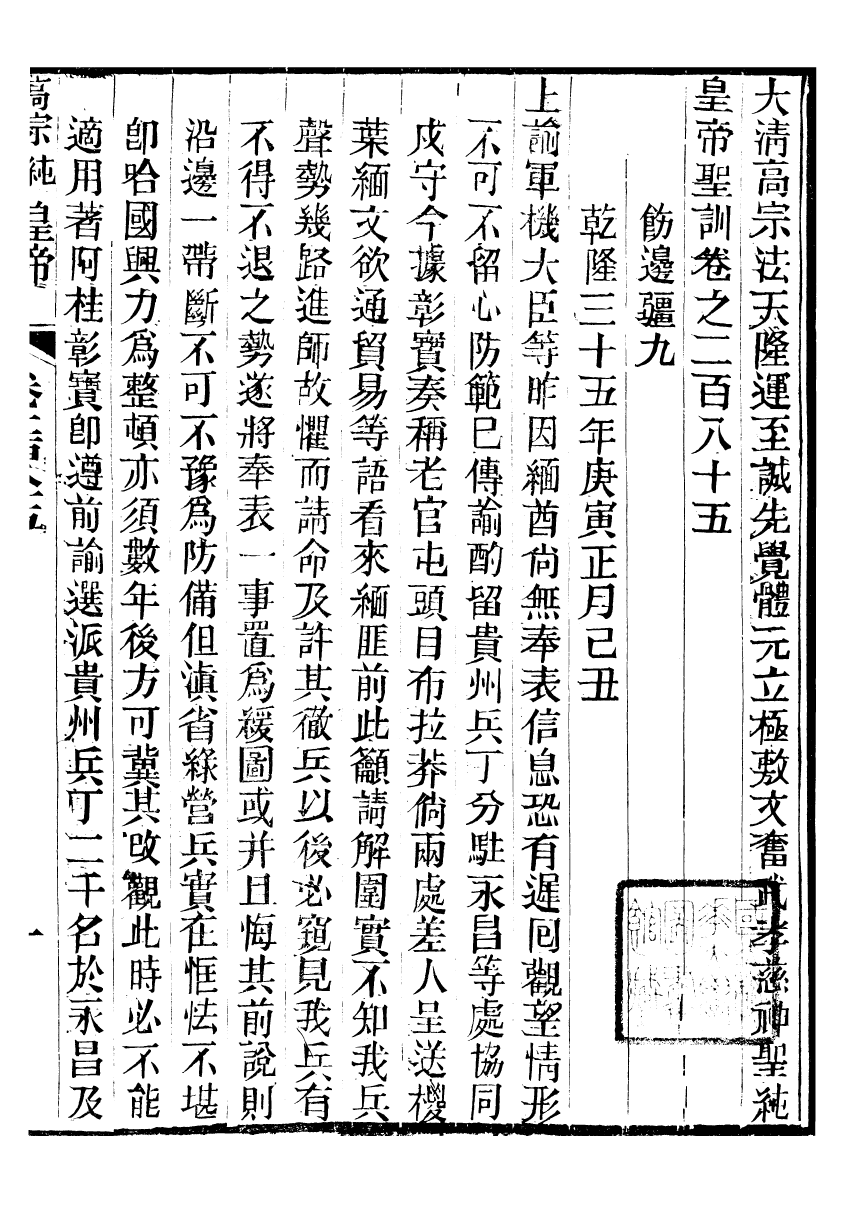 大淸高宗法天隆運至誠先覺體元立極敷文奮武孝慈神聖純
皇帝聖訓卷之二百八十五
飭邊疆九
乾隆三十五年庚寅正月己丑
上諭軍機大臣等昨因緬酋尙無奉表信息恐有遲回觀望情形
不可不留心防範已傳諭酌留貴州兵丁分駐永昌等處協同
戍守今據彰寶奏稱老官屯頭目布拉莽倘兩處差人呈送椶
葉緬文欲通貿易等語看來緬匪前此籲請解圍實不知我兵
聲勢幾路進師故懼而請命及許其徹兵以後必窺見我兵有
不得不退之勢遂將奉表一事置爲緩圖或并且悔其前說則
沿邊一帶斷不可不豫爲防備但滇省綠營兵實在恇怯不堪
卽哈國興力爲整頓亦須數年後方可冀其改觀此時必不能
適用著阿桂彰寶卽遵前諭選派貴州兵丁二千名於永昌及
高宗純皇帝
一